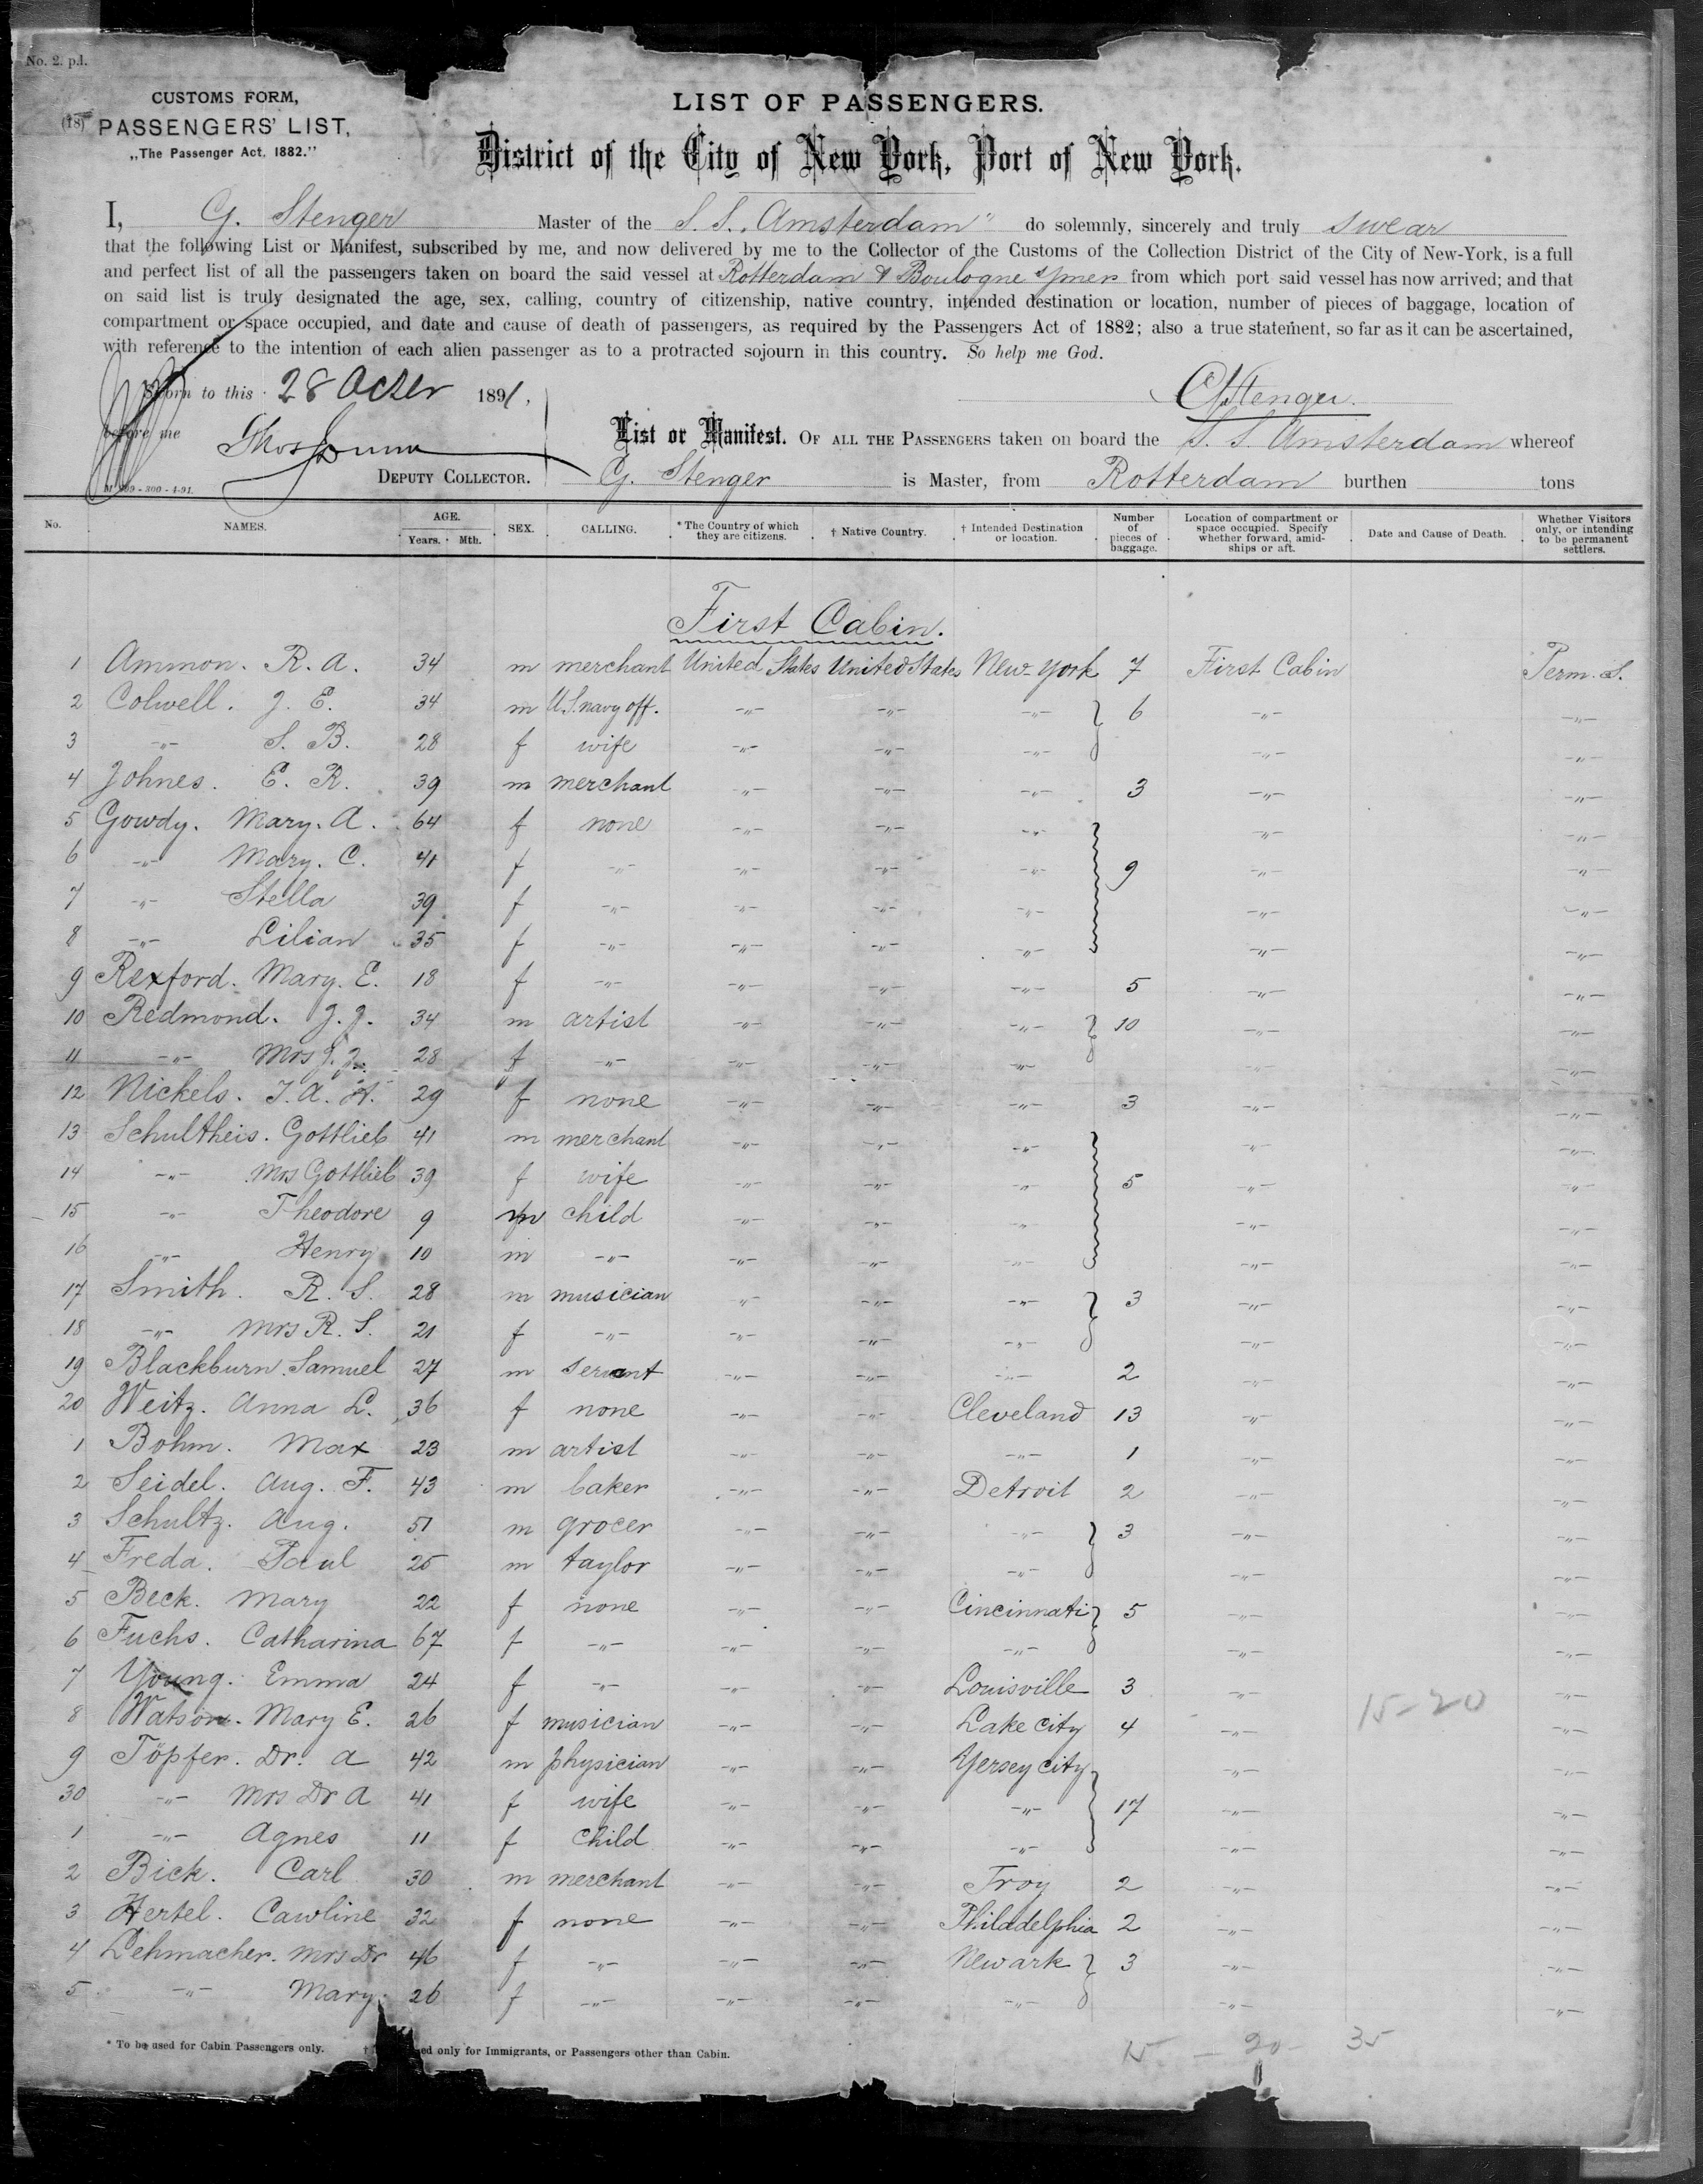 No. 2. p.l.
CUSTOMS FORM,
(18)
PASSENGERS' LIST,
„The Passenger Act, 1882."
LIST OF PASSENGERS.
District of the City of New York, Port of New York.
I, G. Stenger Master of the S.S. „Amsterdam" do solemnly, sincerely and truly swear
that the following List or Manifest, subscribed by me, and now delivered by me to the Collector of the Customs of the Collection District of the City of New-York, is a full
and perfect list of all the passengers taken on board the said vessel at Rotterdam & Boulogne s/mer from which port said vessel has now arrived; and that
on said list is truly designated the age, sex, calling, country of citizenship, native country, intended destination or location, number of pieces of baggage, location of
compartment or space occupied, and date and cause of death of passengers, as required by the Passengers Act of 1882; also a true statement, so far as it can be ascertained,
with reference to the intention of each alien passenger as to a protracted sojourn in this country. So help me God.
Sworn to this 28 Octer 1891,
G Stenger.
before me
List or Manifest. OF ALL THE PASSENGERS taken on board the S. S. Amsterdam whereof
DEPUTY COLLECTOR.
G. Stenger is Master, from Rotterdam burthen tons
No. NAMES. AGE. Years. Mth. SEX. CALLING. * The Country of which they are citizens. † Native Country. † Intended Destination or location. Number of pieces of baggage. Location of compartment or space occupied. Specify whether forward, amid-ships or aft. Date and Cause of Death. Whether Visitors only, or intending to be permanent settlers.
First Cabin.
1 Ammon. R. A. 34 m merchant United States United States New-York 7 First Cabin Perm. S.
2 Colwell. J. E. 34 m U.S. navy off. -"- -"- -"- 6 -"- -"-
3 -"- S. B. 28 f wife -"- -"- -"- -"- -"-
4 Johnes. E. R. 39 m merchant -"- -"- -"- 3 -"- -"-
5 Gowdy. Mary. A. 64 f none -"- -"- -"- -"- -"-
6 -"- Mary. C. 41 f -"- -"- -"- -"- 9 -"- -"-
7 -"- Stella 39 f -"- -"- -"- -"- -"- -"-
8 -"- Lilian 35 f -"- -"- -"- -"- -"- -"-
9 Rexford. Mary. E. 18 f -"- -"- -"- -"- 5 -"- -"-
10 Redmond. J. J. 34 m artist -"- -"- -"- 10 -"- -"-
11 -"- Mrs J. J. 28 f -"- -"- -"- -"- -"- -"-
12 Nickels. J. A. H. 29 f none -"- -"- -"- 3 -"- -"-
13 Schultheis. Gottlieb 41 m merchant -"- -"- -"- -"- -"-
14 -"- Mrs Gottlieb 39 f wife -"- -"- -"- 5 -"- -"-
15 -"- Theodore 9 m child -"- -"- -"- -"- -"-
16 -"- Henry 10 m -"- -"- -"- -"- -"- -"-
17 Smith. R. S. 28 m musician -"- -"- -"- 3 -"- -"-
18 -"- Mrs R. S. 21 f -"- -"- -"- -"- -"- -"-
19 Blackburn. Samuel 27 m servant -"- -"- -"- 2 -"- -"-
20 Weitz. Anna L. 36 f none -"- -"- Cleveland 13 -"- -"-
1 Bohm. Max 23 m artist -"- -"- -"- 1 -"- -"-
2 Seidel. Aug. F. 43 m baker -"- -"- Detroit 2 -"- -"-
3 Schultz. Aug. 51 m grocer -"- -"- -"- 3 -"- -"-
4 Freda. Paul 25 m taylor -"- -"- -"- -"- -"-
5 Beck. Mary 22 f none -"- -"- Cincinnati 5 -"- -"-
6 Fuchs. Catharina 67 f -"- -"- -"- -"- -"- -"-
7 Young. Emma 24 f -"- -"- -"- Louisville 3 -"- -"-
8 Watson. Mary E. 26 f musician -"- -"- Lake city 4 -"- 15-20 -"-
9 Töpfer. Dr. A 42 m physician -"- -"- Yersey city -"- -"-
30 -"- Mrs Dr A 41 f wife -"- -"- -"- 17 -"- -"-
1 -"- Agnes 11 f child -"- -"- -"- -"- -"-
2 Bick. Carl 30 m merchant -"- -"- Troy 2 -"- -"-
3 Hertel. Cawline 32 f none -"- -"- Philadelphia 2 -"- -"-
4 Lehmacher. Mrs Dr 46 f -"- -"- -"- Newark 3 -"- -"-
5 -"- Mary 26 f -"- -"- -"- -"- -"- -"-
* To be used for Cabin Passengers only. † ed only for Immigrants, or Passengers other than Cabin.
15 - 20 - 35